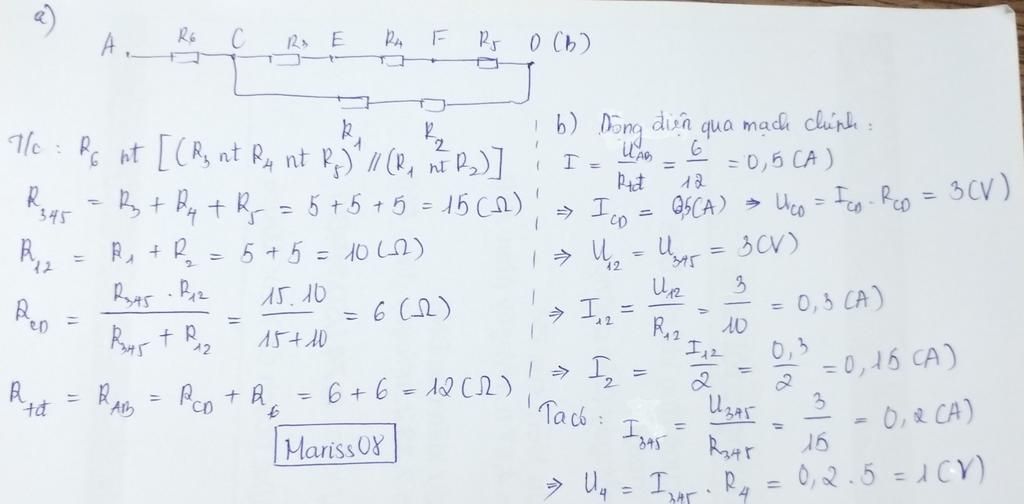 a)
A R6 C R3 E R4 F R5 D (B)
R1 R2
T/c : R6 nt [(R3 nt R4 nt R5) // (R1 nt R2)]
R345 = R3 + R4 + R5 = 5 + 5 + 5 = 15 (Ω)
R12 = R1 + R2 = 5 + 5 = 10 (Ω)
RCD = R345 . R12 / R345 + R12 = 15 . 10 / 15 + 10 = 6 (Ω)
Rtđ = RAB = RCD + R6 = 6 + 6 = 12 (Ω)
Mariss08
b) Dòng điện qua mạch chính :
I = UAB / Rtđ = 6 / 12 = 0,5 (A)
⇒ ICD = 0,5 (A) ⇒ UCD = ICD . RCD = 3 (V)
⇒ U12 = U345 = 3 (V)
⇒ I12 = U12 / R12 = 3 / 10 = 0,3 (A)
⇒ I2 = I12 / 2 = 0,3 / 2 = 0,15 (A)
Ta có : I345 = U345 / R345 = 3 / 15 = 0,2 (A)
⇒ U4 = I345 . R4 = 0,2 . 5 = 1 (V)